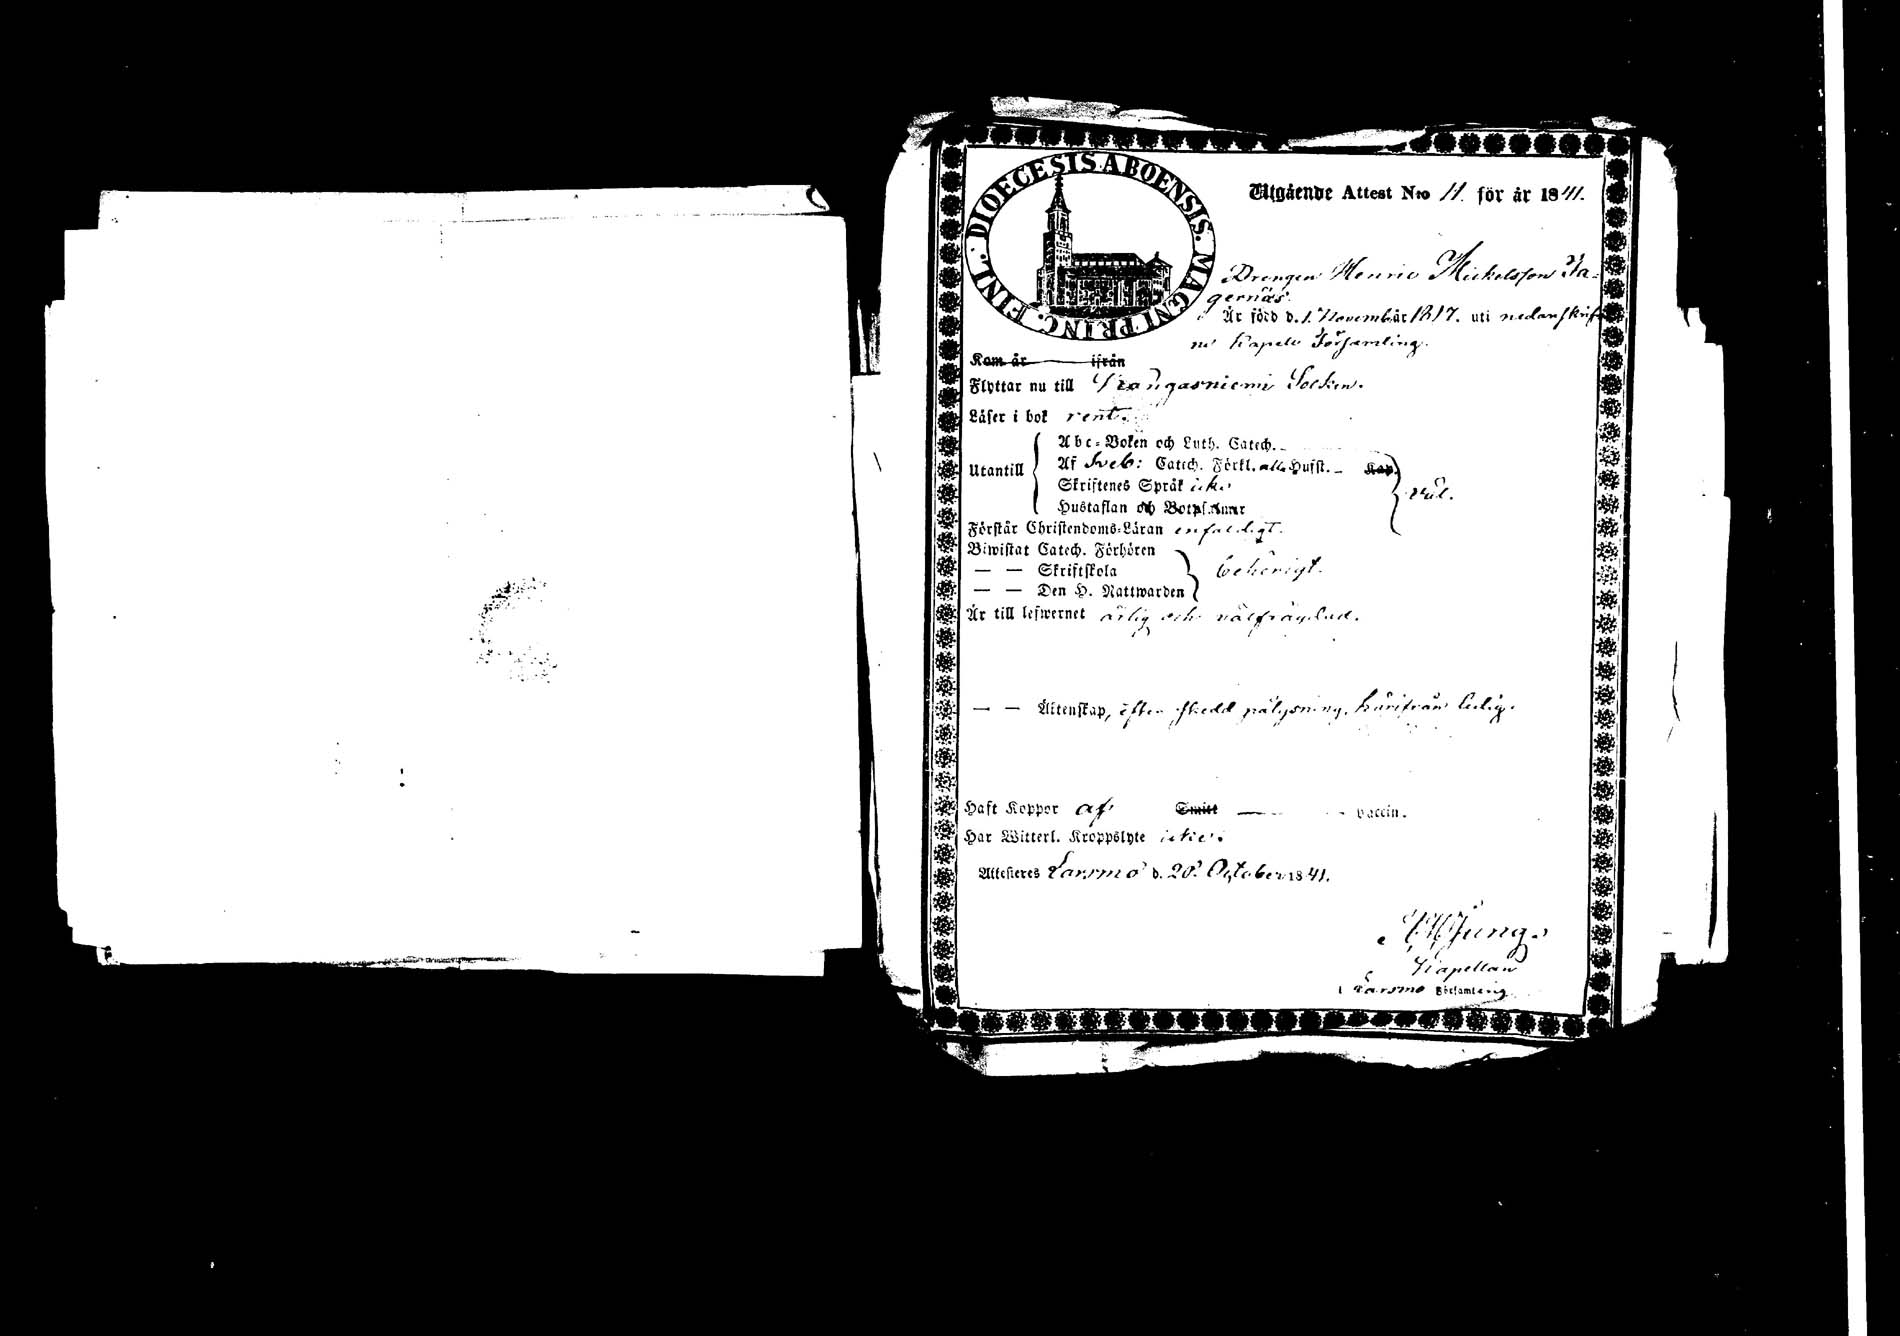 DIOECESIS ABOENSIS. MAGNI PRINC. FINL.
Utgående Attest N:ro 11. för år 1841.
Drengen Henric Mickelsson Fa-
gernäs.
Är född d. 1. Novemb. år 1817. uti nedanskrif
ne Kapells Församling.
Kom år ifrån
Flyttar nu till Kangasniemi Socken.
Läser i bok rent.
Utantill
Abc-Boken och Luth. Catech.
Af Sveb: Catech. Förkl. alla Hufst. Kap.
Skriftenes Språk icke
väl.
Hustaflan och Botps.
Förstår Christendoms-Läran enfaldigt.
Biwistat Catech. Förhören
— — Skriftskola behörigt.
— — Den H. Nattwarden
Är till lefwernet ärlig och välfrägdad.
— — Äktenskap, efter skedd pålysning, härifrån ledig.
Haft Koppor af Smitt vaccin.
Har Witterl. Kroppslyte icke.
Attesteres Larsmo d. 20. October 1841.
Jung.
Kapellan
i Larsmo Församling